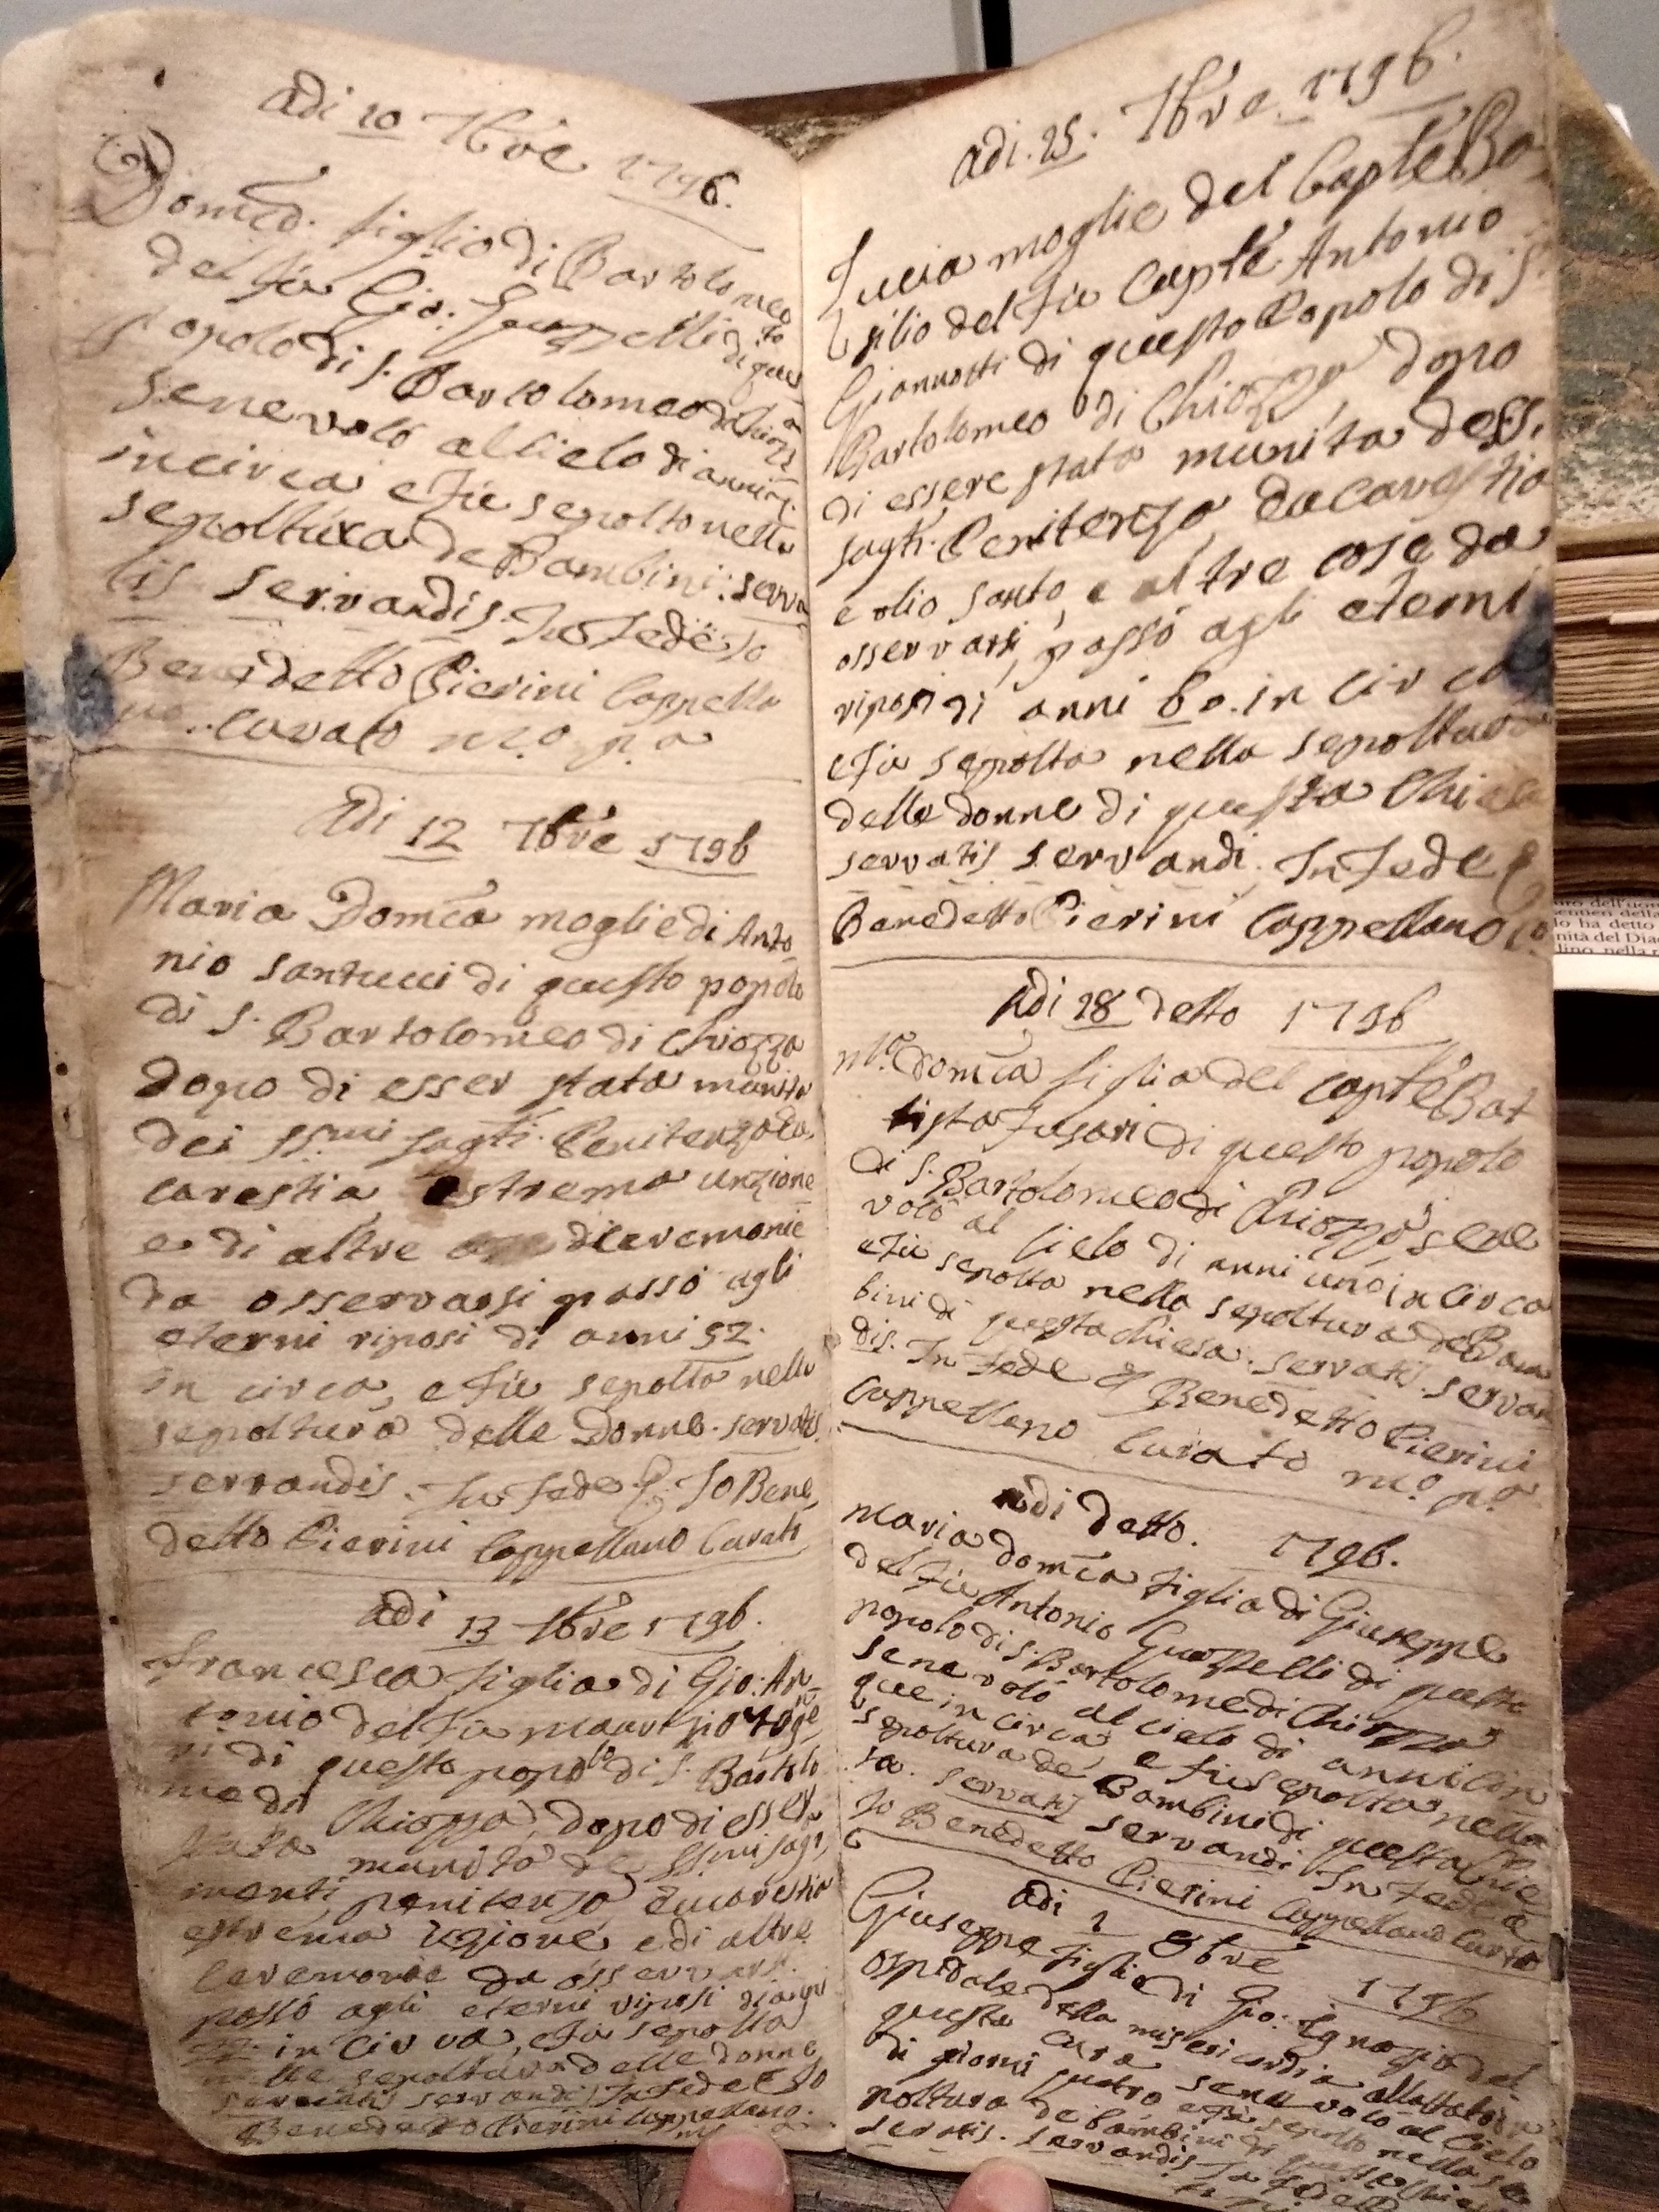 Adi 10 7bre 1796.
Domco. figlio di Bartolomeo
del fu Gio: Guazzelli di questo
Popolo di S. Bartolomeo di Chiozza
sene volò al Cielo di anni
incirca e fu sepolto nella
sepoltura de Bambini: serva
tis servandis. In Fede Io
Benedetto Pierini Cappella
no Curato mo. pa
Adi 12 7bre 1796
Maria Domca moglie di Anto
nio santucci di questo popolo
di S. Bartolomeo di Chiozza
dopo di esser stata munita
dei SSmi sagti. Penitenza Eu
carestia, estrema unzione
e di altre ceremonie
da osservarsi passò agli
eterni riposi di anni 52.
in circa, e fu sepolta nella
sepoltura delle Donne. servatis
servandis. In Fede Io Bene
detto Pierini Cappellano Curato
adi 13 7bre 1796.
Francesca figlia di Gio: An
tonio del fu Maurizio
di questo popolo di S. Bartolo
meo di Chiozza, dopo di esser
stata munita de SSmi sagr
menti, penitenza Eucarestia
estrema uzione, e di altre
ceremonie da osservarsi
passò agli eterni riposi di anni
in circa, e fu sepolta
nella sepoltura delle donne
servatis servandis In Fede Io
Benedetto Pierini Cappellano.
adi. 25. 7bre. 1796.
Lucia moglie del Capte Ba
silio del fu Capte Antonio
Giannotti di questo Popolo di S.
Bartolomeo di Chiozza, dopo
di essere stata munita de SS.
sagti. Penitenza, Eucarestia
e olio santo, e altre cose da
osservarsi, passò agli eterni
riposi di anni 60. in circa
e fu sepolta nella sepoltura
delle donne di questa Chiesa
servatis servandi. In Fede
Benedetto Pierini Cappellano Co
Adi 28 detto 1796
Ma. domca figlia del capte Bat
tista Fusari di questo popolo
di S. Bartolomeo di Chiozza, sene
volò al Cielo di anni uno in circa
e fu sepolta nella sepoltura de Bam
bini di questa Chiesa. servatis. servan
dis. In Fede Benedetto Pierini
Cappellano Curato mo. pa
adi detto. 1796.
Maria domca figlia di Giuseppe
del fu Antonio Guazzelli di questo
popolo di S. Bartolomeo di Chiozza
sene volò al cielo di anni cin
que in circa, e fu sepolta nella
sepoltura de Bambini di questa Chie
sa. servatis servandi In Fede
Io Benedetto Pierini Cappellano Curato
adi 1 8bre 1796
Giuseppe figlio di Gio: Ignazio del
ospidale della misericordia allattato in
questa cura sene volò al Cielo
di giorni quatro e fu sepolto nella se
poltura de bambini di questa Chiesa
servatis. servandis In Fede